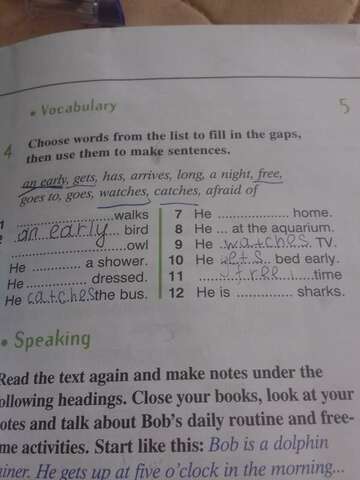 • Vocabulary
5
4 Choose words from the list to fill in the gaps,
then use them to make sentences.
an early, gets, has, arrives, long, a night, free,
goes to, goes, watches, catches, afraid of
1 ....................walks
an early bird
....................owl
He .............. a shower.
He .............. dressed.
He catches the bus.
7 He ................. home.
8 He ... at the aquarium.
9 He watches TV.
10 He gets bed early.
11 free time
12 He is .............. sharks.
• Speaking
Read the text again and make notes under the
ollowing headings. Close your books, look at your
otes and talk about Bob's daily routine and free-
me activities. Start like this: Bob is a dolphin
ainer. He gets up at five o'clock in the morning...